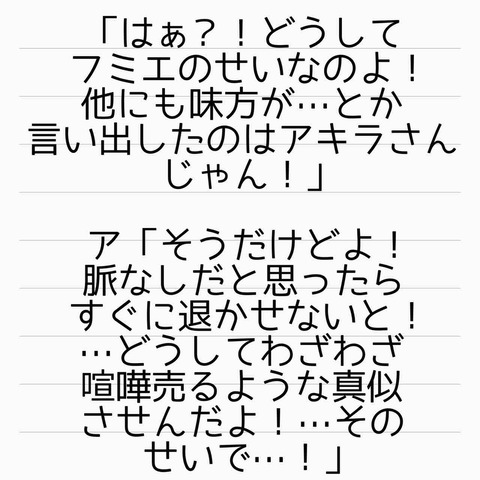 「はぁ？！どうして
フミエのせいなのよ！
他にも味方が…とか
言い出したのはアキラさん
じゃん！」
ア「そうだけどよ！
脈なしだと思ったら
すぐに退かせないと！
…どうしてわざわざ
喧嘩売るような真似
させんだよ！…その
せいで…！」